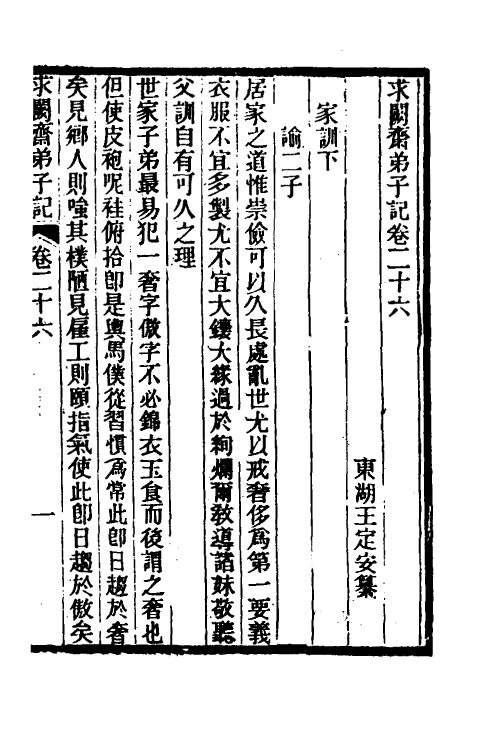 求闕齋弟子記卷二十六
東湖王定安纂
家訓下
諭二子
居家之道惟崇儉可以久長處亂世尤以戒奢侈爲第一要義
衣服不宜多製尤不宜大鑲大緣過於絢爛爾敎導諸妹敬聽
父訓自有可久之理
世家子弟最易犯一奢字傲字不必錦衣玉食而後謂之奢也
但使皮袍呢褂俯拾卽是輿馬僕從習慣爲常此卽日趨於奢
矣見鄉人則嗤其樸陋見僱工則頤指氣使此卽日趨於傲矣
求闕齋弟子記
卷二十六
一